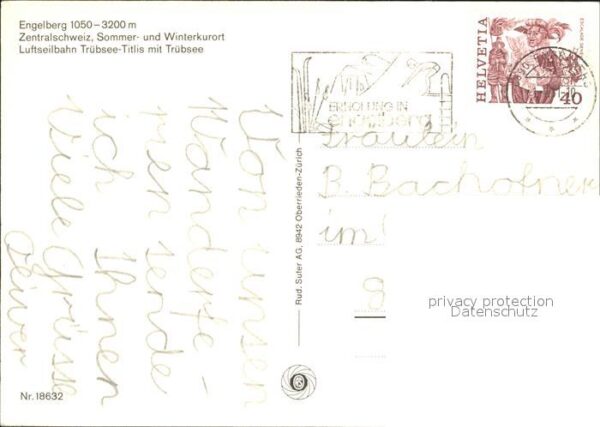 Engelberg 1050–3200 m
Zentralschweiz, Sommer- und Winterkurort
Luftseilbahn Trübsee-Titlis mit Trübsee
HELVETIA
40
ERHOLUNG IN
engelberg
Von unsen
Wanderfe-
rien sende
ich Ihnen
Viele Grüsse
Oliver
Rud. Suter AG, 8942 Oberrieden-Zürich
Fräulein
B. Bachofner
im
8
privacy protection
Datenschutz
Nr. 18632